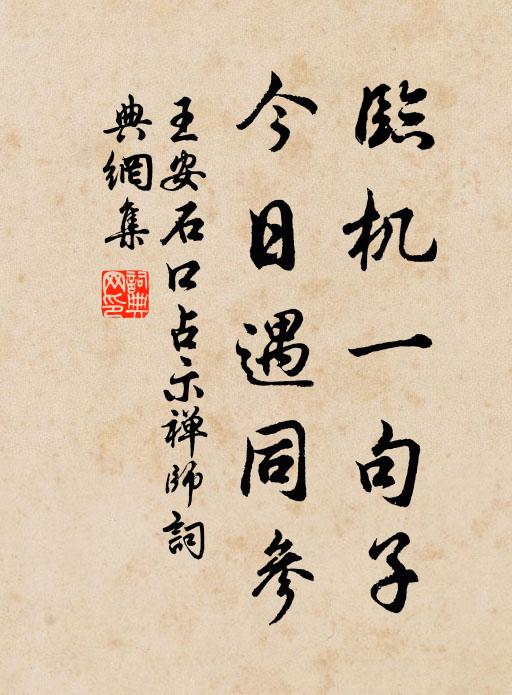 臨机一句子
今日遇同參
王安石口占示禅師詞
典網集
詞典网印